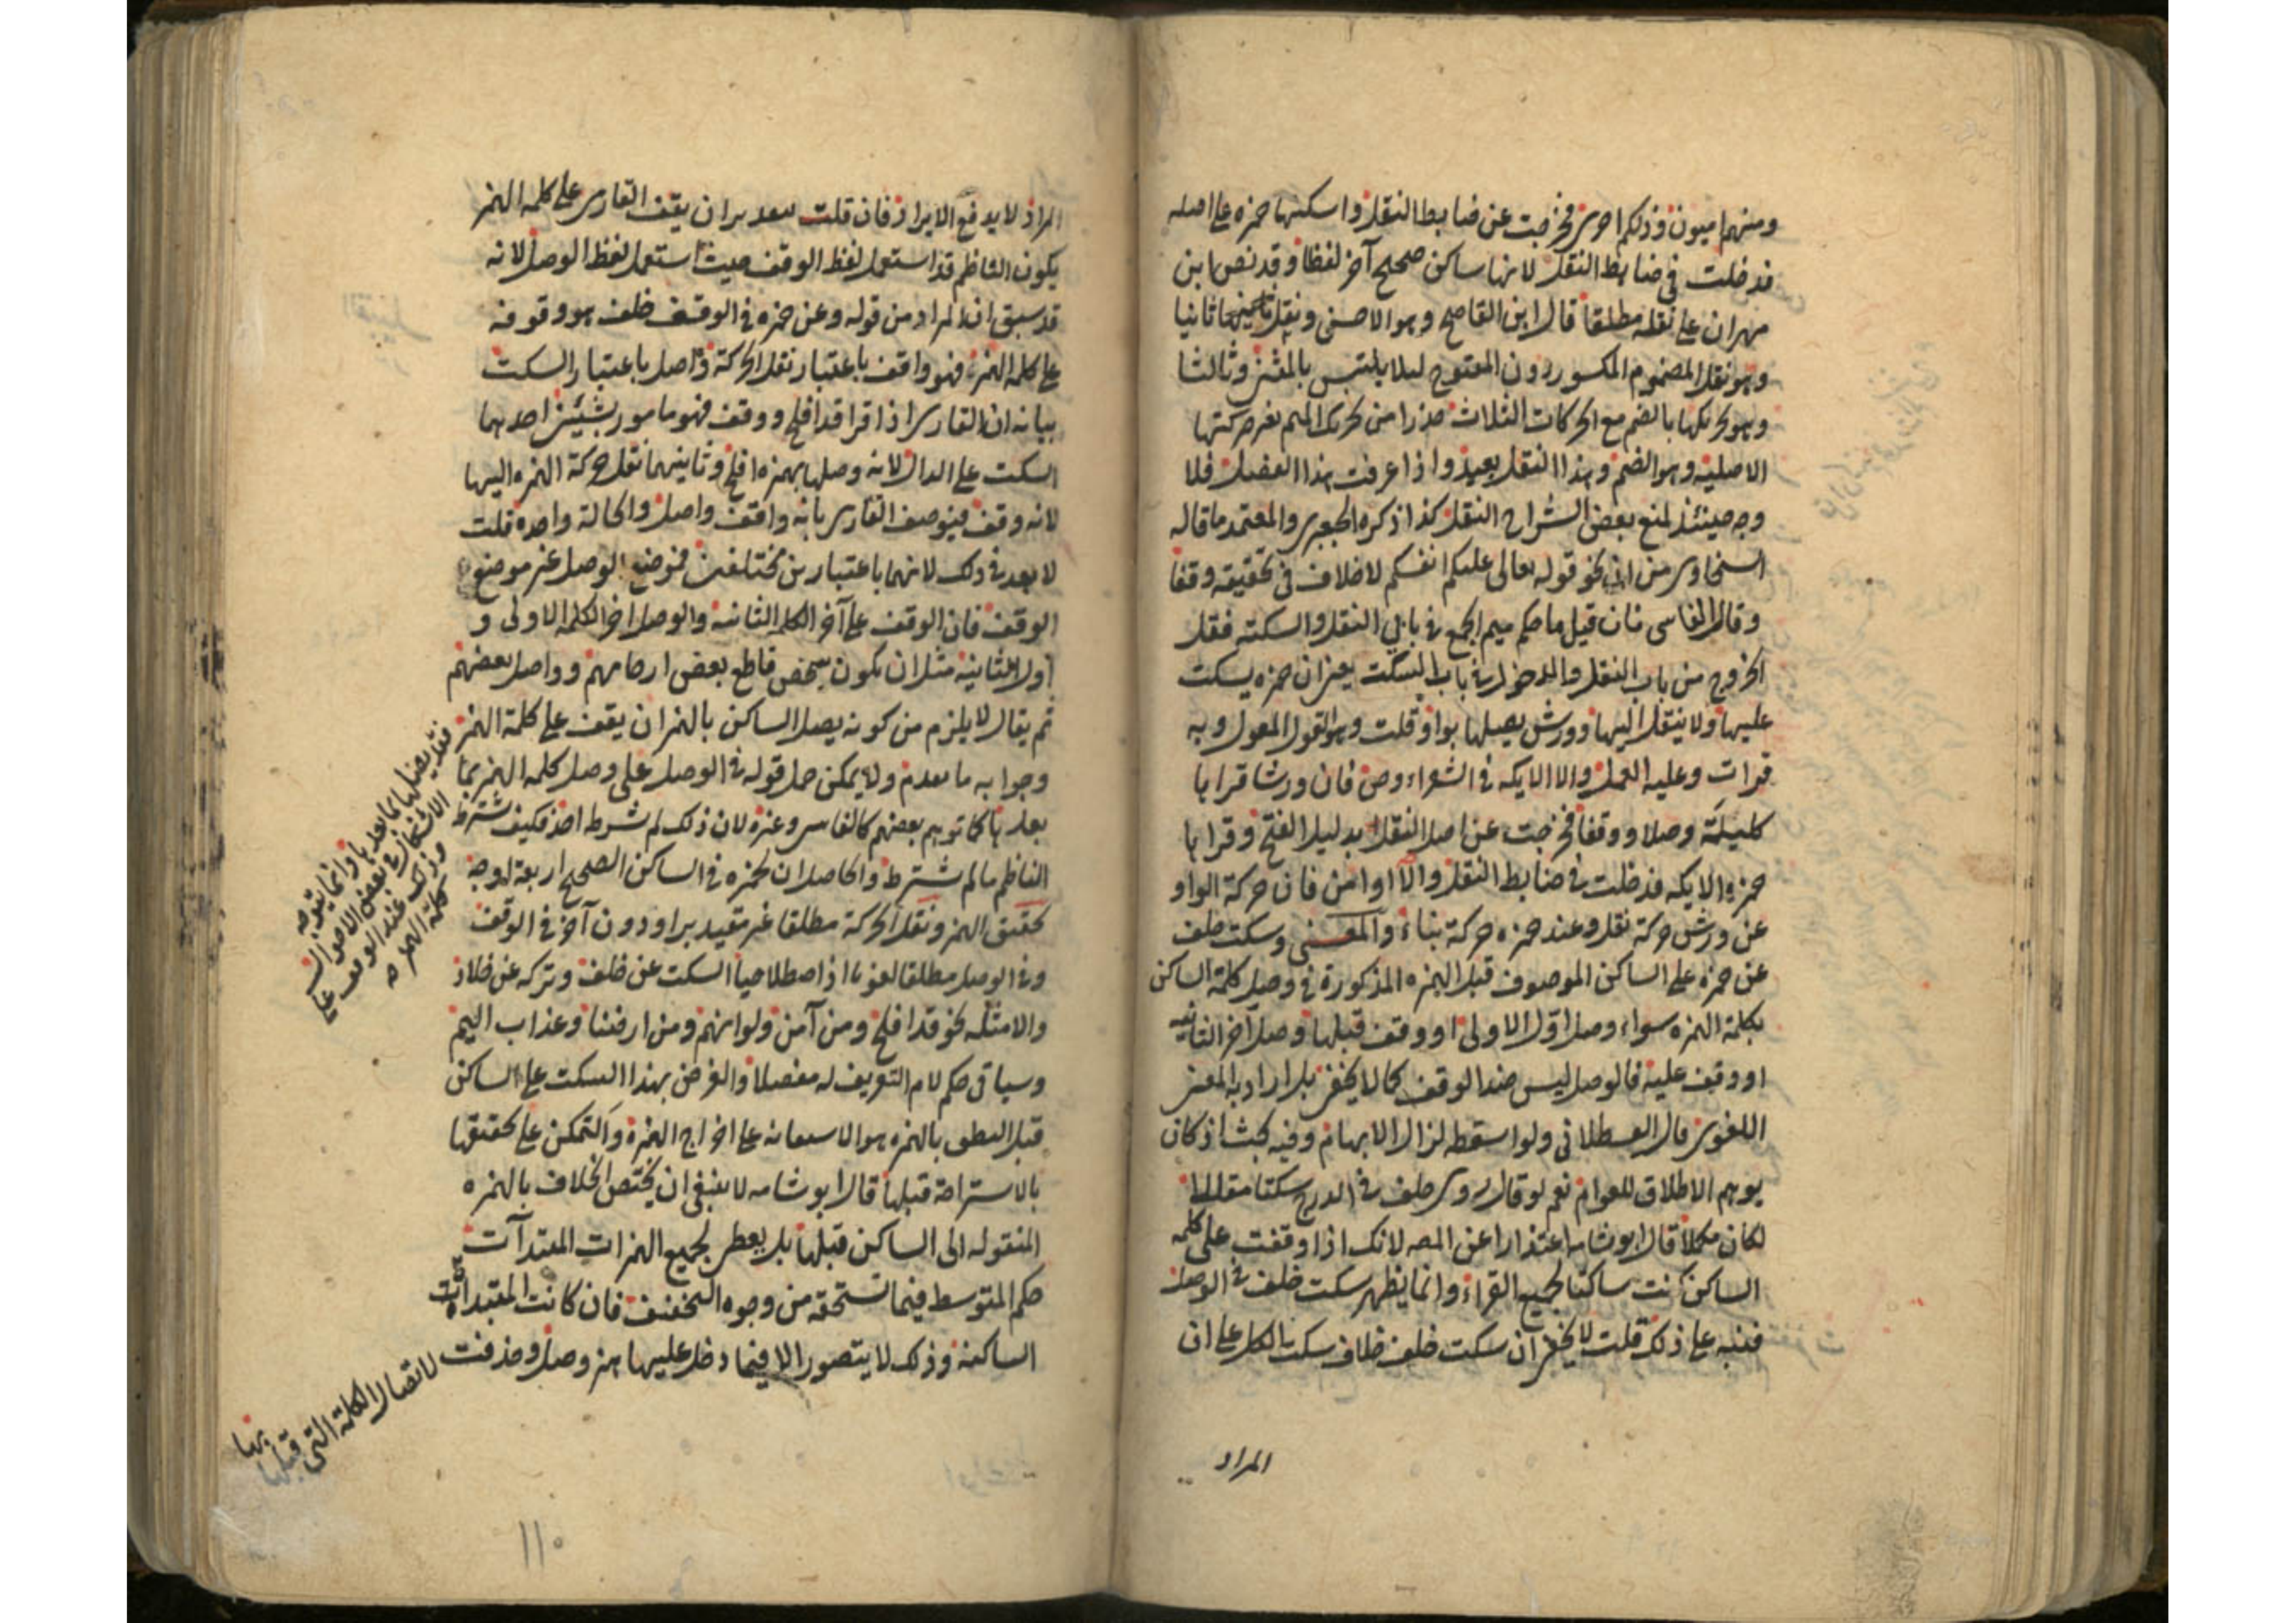 ومنهم اميون وذلكم اصري فخرجت عن ضابط النقل واسكنها حمزه على اصله
فدخلت في ضابط النقل لانها ساكن صحيح آخر لفظا وقد نص ابن
مهران على نقله مطلقا قال ابن القاصح وهو الاحسن ونقل ثانيا
وهو نقل المضموم المكسور دون المفتوح ليلا يلتبس بالمثنى وثالثا
وهو تحريكها بالضم مع الحركات الثلاث حذرا من تحريك الميم بغير حركتها
الاصليه وهو الضم وهذا النقل بعيد واذا عرفت هذا الفصل فلا
وجه حينئذ لمنع بعض الشراح النقل كذا ذكره الجعبري والمعتمد ما قاله
السخاوي من ان نحو قوله تعالى عليكم انفسكم لا خلاف في تحقيقه وقفا
وقال الفاسي فان قيل ما حكم ميم الجمع في بابي النقل والسكته فقل
الخروج من باب النقل والدخول في باب السكت يعني ان حمزه يسكت
عليها ولا ينقل اليها وورش يصلها بواو قلت وهو القول المعول وبه
قرات وعليه العمل والا الايكه في الشعراء وص فان ورشا قرا بها
كليلة وصلا ووقفا فخرجت عن اصل النقل بدليل الفتح وقرا بها
حمزه الايكه فدخلت في ضابط النقل والا اوامن فان حركة الواو
عن ورش حركة نقل وعند حمزه حركة بناء والمعنى وسكت خلف
عن حمزه على الساكن الموصوف قبل الهمزه المذكورة في وصل كلمة الساكن
بكلمة الهمزه سواء وصل اول الاولى او وقف قبلها وصل آخر الثانيه
او وقف عليه فالوصل ليس ضد الوقف كما لا يخفى بل اراد به المعنى
اللغوي قال القسطلاني ولو اسقطه لزال الابهام وفيه بحث اذ كان
يوهم الاطلاق للعوام نعم لو قال روى خلف في الدرج سكتا مقللا
لكان مكملا قال ابو شامه اعتذارا عن المصه لانك اذا وقفت على كلمه
الساكن كنت ساكتا لجميع القراء وانما يظهر سكت خلف في الوصل
فنبه على ذلك قلت لا يخفى ان سكت خلف خلاف سكت الكل على ان
المراد
المراد لا يدفع الايراد فان قلت بعد ان يقف القاري على كلمه الهمز
يكون الناظم قد استعمل لفظ الوقف حيث استعمل لفظ الوصل لانه
قد سبق ان المراد من قوله وعن حمزه في الوقف خلف هو وقوفه
على كلمه الهمز فهو واقف باعتبار نقل الحركة واصل باعتبار السكت
بيانه ان القاري اذا قرا قد افلح ووقف فهو مامور بشيئين احدهما
السكت على الدال لانه وصلها بهمزه افلح وثانيهما نقل حركة الهمزه اليها
لانه وقف فيوصف القاري بانه واقف واصل والحالة واحده قلت
لا بعد في ذلك لانهما باعتبارين مختلفين فموضع الوصل غير موضع
الوقف فان الوقف على آخر الكلمه الثانيه والوصل اخر الكلمه الاولى و
اول الثانيه مثل ان يكون شخص قاطع بعض ارحامهم وواصل بعضهم
ثم يقال لا يلزم من كونه يصل الساكن بالهمز ان يقف على كلمة الهمز
فقد يصلها بما بعدها وانما يتوجه
الاشكال في بعض الاحوال
وذلك عند الوقف على
كلمة الهمزه
وجوابه ما تقدم ولا يمكن حمل قوله في الوصل على وصل كلمه الهمز بما
بعدها كما توهم بعضهم كالفاسي وغيره لان ذلك لم يشرط احد فكيف يشترط
الناظم ما لم يشترط والحاصل ان لحمزه في الساكن الصحيح اربعة اوجه
تحقيق الهمز ونقل الحركة مطلقا غير مقيد براو دون آخر في الوقف
وفي الوصل مطلقا لغويا اذ اصطلاحيا السكت عن خلف وتركه عن خلاد
والامثله نحو قد افلح ومن آمن ولو انهم ومن ارضنا وعذاب اليم
وسياتي حكم لام التعريف له مفصلا والغرض بهذا السكت على الساكن
قبل النطق بالهمزه هو الاستعانه على اخراج الهمزة والتمكن على تحقيقها
بالاستراحة قبلها قال ابو شامه لا ينبغي ان يختص الخلاف بالهمزه
المنقوله الى الساكن قبلها بل يعطى لجميع الهمزات المبتدآت
حكم المتوسط فيما تستحقه من وجوه التخفيف فان كانت المبتدات
الساكنة وذلك لا يتصور الا فيما دخل عليها همز وصل وحذفت لاتصال الكلمة التي قبلها
بها
١١٠